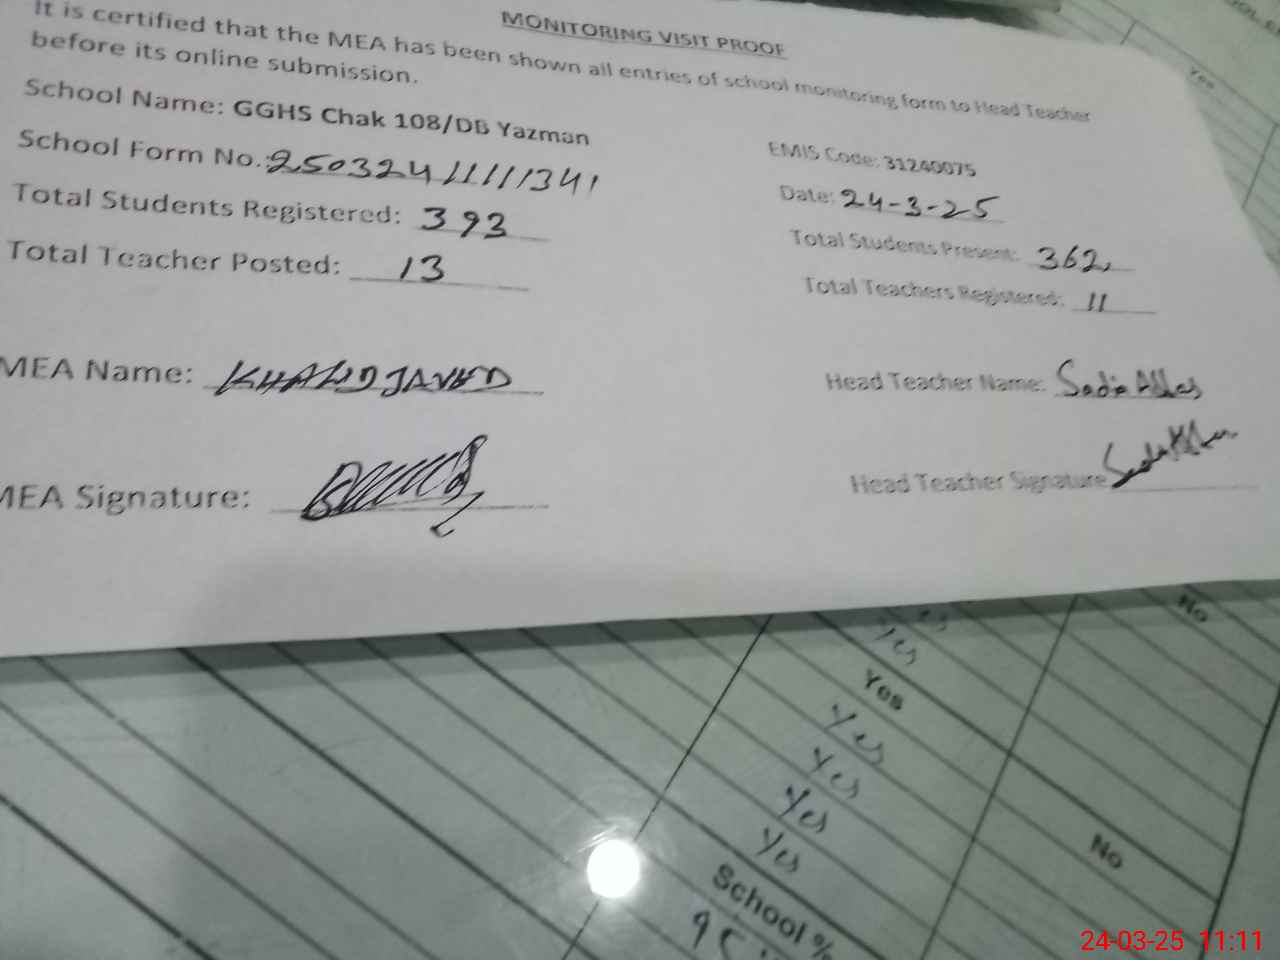 MONITORING VISIT PROOF
It is certified that the MEA has been shown all entries of school monitoring form to Head Teacher
before its online submission.
School Name: GGHS Chak 108/DB Yazman
EMIS Code: 31240075
School Form No.: 25032411111341
Date: 24-3-25
Total Students Registered: 393
Total Students Present: 362
Total Teacher Posted: 13
Total Teachers Registered: 11
MEA Name: KHALID JAVED
Head Teacher Name: Sadia Abbas
MEA Signature:
Head Teacher Signature
Yes
No
Yes
Yes
Yes
Yes
Yes
Yes
No
School %
24-03-25 11:11